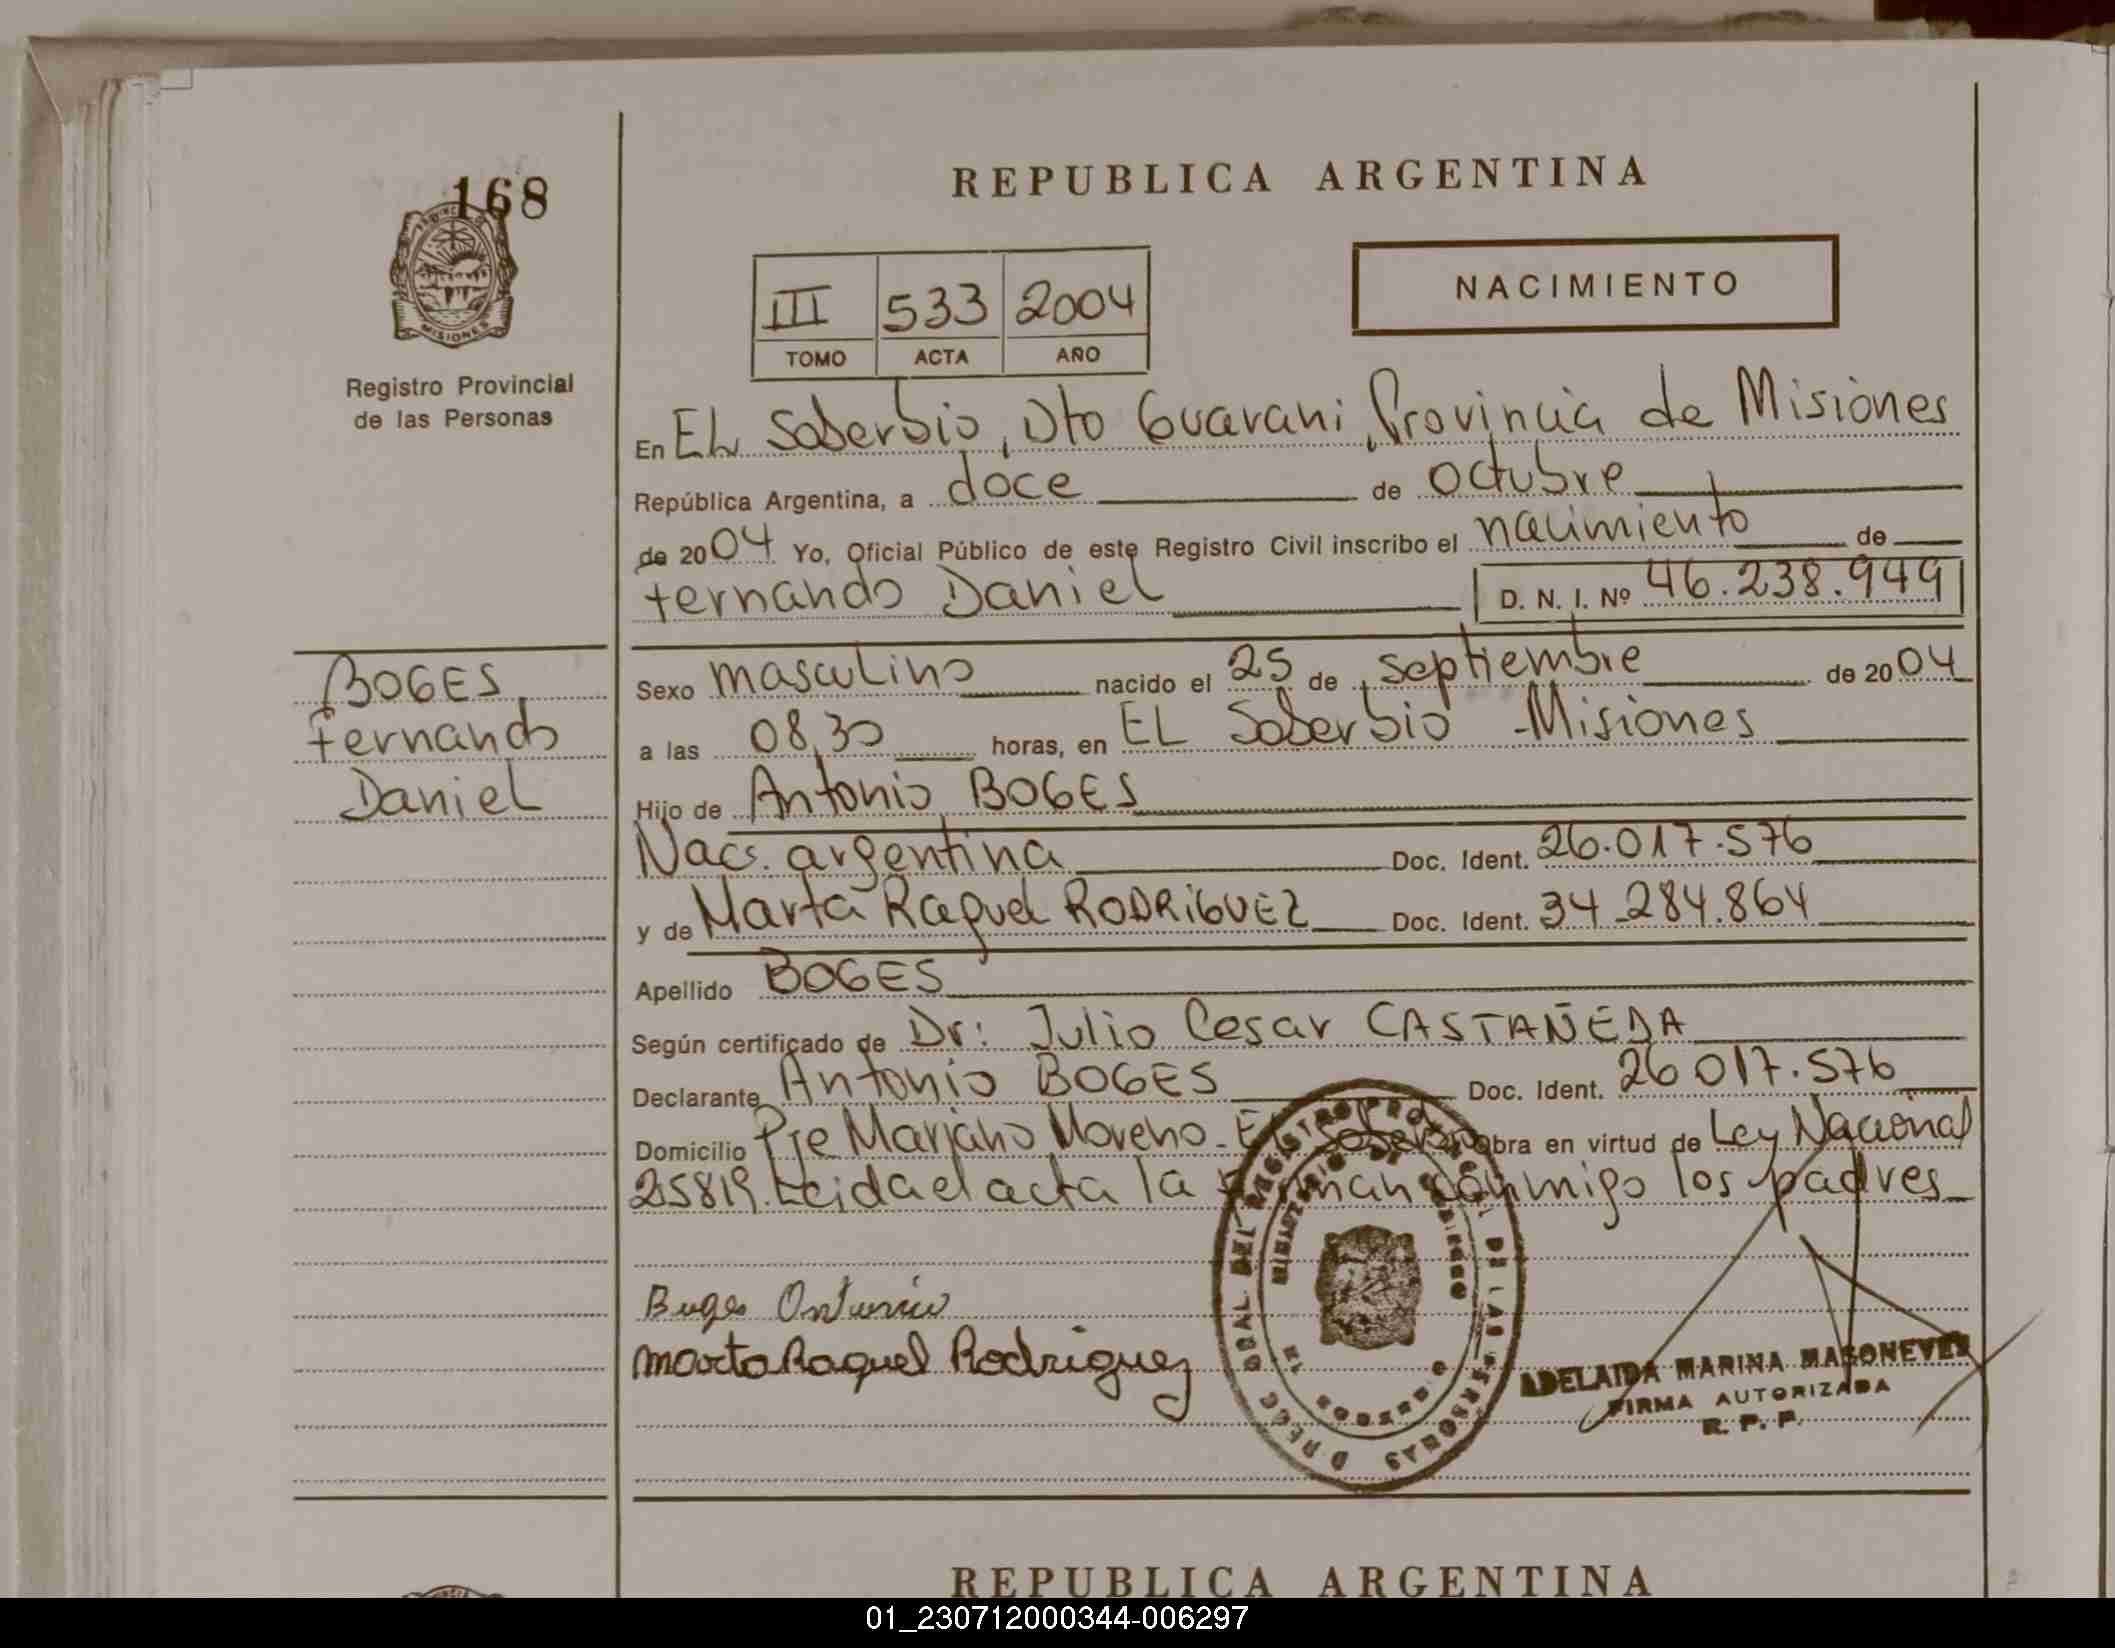 168
REPUBLICA ARGENTINA
NACIMIENTO
III 533 2004
TOMO ACTA AÑO
MISIONES
Registro Provincial
de las Personas
En EL Soberbio, Dto Guarani, Provincia de Misiones
República Argentina, a doce de octubre
de 2004 Yo, Oficial Público de este Registro Civil inscribo el nacimiento de
Fernando Daniel D. N. I. Nº 46.238.949
BOGES
Fernando
Daniel
Sexo masculino nacido el 25 de septiembre de 2004
a las 08,30 horas, en EL Soberbio - Misiones
Hijo de Antonio BOGES
Nacs. argentina Doc. Ident. 26.017.576
y de Marta Raquel RODRIGUEZ Doc. Ident. 34.284.864
Apellido BOGES
Según certificado de Dr: Julio Cesar CASTAÑEDA
Declarante Antonio BOGES Doc. Ident. 26 017.576
Domicilio Pje Mariano Moreno - EL Soberbio obra en virtud de Ley Nacional
25819. Leida el acta la firman conmigo los padres
Boges Antonio
Marta Raquel Rodriguez
ADELAIDA MARINA
FIRMA AUTORIZADA
R. P. P.
REPUBLICA ARGENTINA
01_230712000344-006297